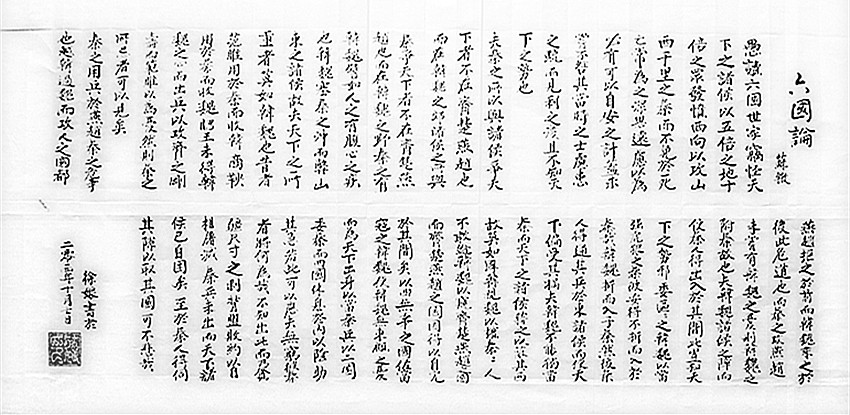 六國論
蘇轍
愚讀六國世家竊怪天
下之諸侯以五倍之地十
倍之眾發憤西向以攻山
西千里之秦而不免於死
亡常為之深思遠慮以為
必有可以自安之計蓋未
嘗不咎其當時之士慮患
之疏而見利之淺且不知天
下之勢也
夫秦之所以與諸侯爭天
下者不在齊楚燕趙也
而在韓魏之郊諸侯之所與
秦爭天下者不在齊楚燕
趙也而在韓魏之野秦之有
韓魏譬如人之有腹心之疾
也韓魏塞秦之沖而蔽山
東之諸侯故夫天下之所
重者莫如韓魏也昔者
范雎用於秦而收韓商鞅
用於秦而收魏昭王未得韓
魏之心而出兵以攻齊之剛
壽而范雎以為憂然則秦之
所忌者可以見矣
秦之用兵於燕趙秦之危事
也越韓過魏而攻人之國都
燕趙拒之於前而韓魏乘之於
後此危道也而秦之攻燕趙
未嘗有韓魏之憂則韓魏之
附秦故也夫韓魏諸侯之障而
使秦人得出入於其間此豈知天
下之勢邪委區區之韓魏以當
強虎狼之秦彼安得不折而入於
秦哉韓魏折而入于秦然後秦
人得通其兵於東諸侯而使天
下偏受其禍夫韓魏不能獨當
秦而天下之諸侯藉之以蔽其西
故莫如厚韓親魏以擯秦秦人
不敢逾韓魏以窺齊楚燕趙之國
而齊楚燕趙之國因得以自完
於其間矣以四無事之國佐當
寇之韓魏使韓魏無東顧之憂
而為天下出身以當秦兵以二國
委秦而四國休息於內以陰助
其急若此可以應夫無窮彼秦
者將何為哉不知出此而乃貪
疆埸尺寸之利背盟敗約以自
相屠滅秦兵未出而天下諸
侯已自困矣至於秦人得伺
其隙以取其國可不悲哉
徐 書於
二零 年十月七日